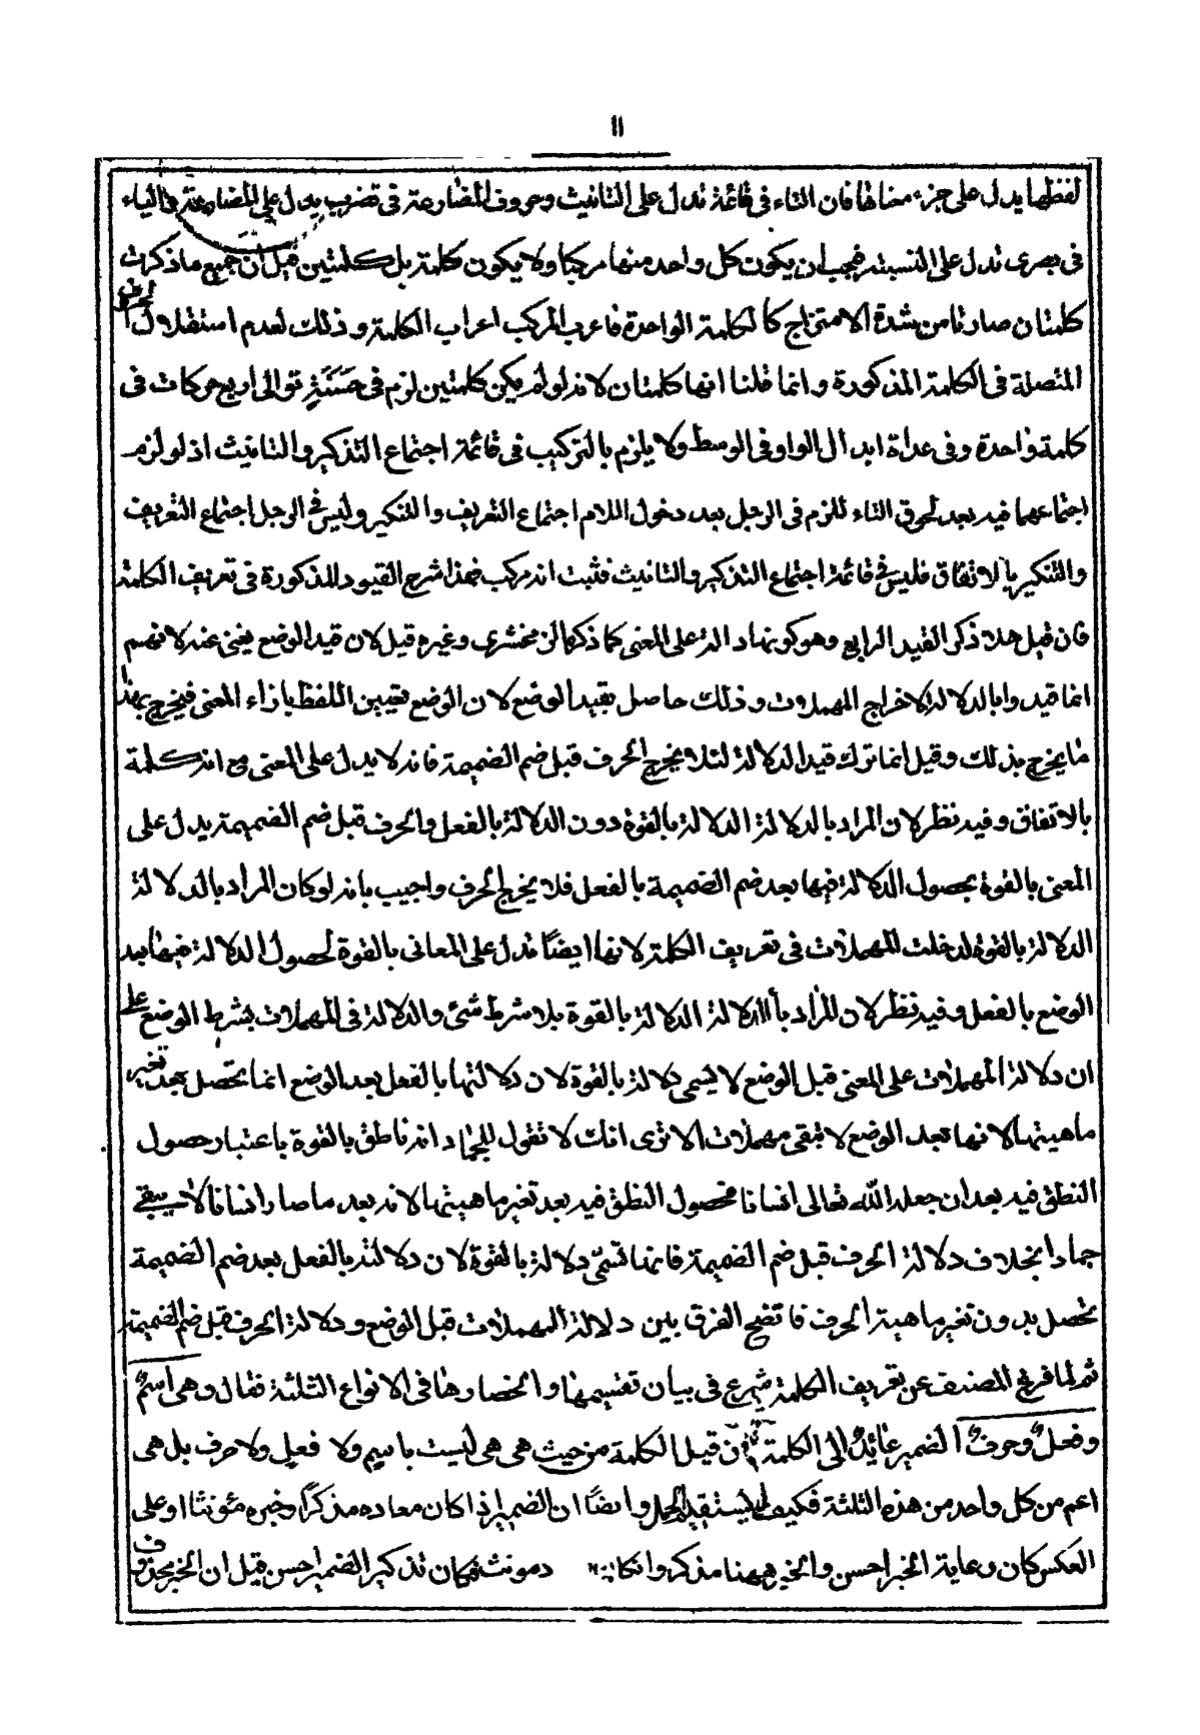 ١١
لفظها يدل على جزء معناها فان التاء فى قائمة تدل على التانيث وحروف المضارعة فى تضرب يدل على المضارعة والياء
فى بصرى تدل على النسبة فيجب ان يكون كل واحد منها مركبا ولا يكون كلمة بل كلمتين قيل ان جميع ما ذكرت
كلمتان صارتا من شدة الامتزاج كالكلمة الواحدة فاعرب المركب اعراب الكلمة وذلك لعدم استقلال الحرف
المتصلة فى الكلمة المذكورة وانما قلنا انها كلمتان لانه لو لم يكن كلمتين لزم فى حَسَنَةٍ توالى اربع حركات فى
كلمة واحدة وفى عداة ابدال الواو فى الوسط ولا يلزم بالتركيب فى قائمة اجتماع التذكير والتانيث اذ لو لزم
اجتماعهما فيه بعد لحوق التاء للزم فى الرجل بعد دخول اللام اجتماع التعريف والتنكير وليس فى الرجل اجتماع التعريف
والتنكير بالاتفاق فليس فى قائمة اجتماع التذكير والتانيث فثبت انه مركب فهذا شرح القيود المذكورة فى تعريف الكلمة
فان قيل هلا ذكر القيد الرابع وهو كونها دالة على المعنى كما ذكر الزمخشرى وغيره قيل لان قيد الوضع يغنى عنه لانهم
انما قيدوا بالدلالة لاخراج المهملات وذلك حاصل بقيد الوضع لان الوضع تعيين اللفظ بازاء المعنى فيخرج بهذا
ما يخرج بذلك وقيل انما ترك قيد الدلالة لئلا يخرج الحرف قبل ضم الضميمة فانه لا يدل على المعنى مع انه كلمة
بالاتفاق وفيه نظر لان المراد بالدلالة الدلالة بالقوة دون الدلالة بالفعل والحرف قبل ضم الضميمة يدل على
المعنى بالقوة بحصول الدلالة فيها بعد ضم الضميمة بالفعل فلا يخرج الحرف واجيب بانه لو كان المراد بالدلالة
الدلالة بالقوة لدخلت المهملات فى تعريف الكلمة لانها ايضًا تدل على المعانى بالقوة لحصول الدلالة فيها بعد
الوضع بالفعل وفيه نظر لان المراد بالدلالة الدلالة بالقوة بلا شرط شئ والدلالة فى المهملات بشرط الوضع على
ان دلالة المهملات على المعنى قبل الوضع لا يسمى دلالة بالقوة لان دلالتها بالفعل بعد الوضع انما يحصل بعد تغير
ماهيتها لانها بعد الوضع لا تبقى مهملات الا ترى انك لا تقول للجماد انه ناطق بالقوة باعتبار حصول
النطق فيه بعد ان جعله الله تعالى انسانا فحصول النطق فيه بعد تغير ماهيتها لانه بعد ما صار انسانا لا يبقى
جمادا بخلاف دلالة الحرف قبل ضم الضميمة فانها تسمّى دلالة بالقوة لان دلالته بالفعل بعد ضم الضميمة
تحصل بدون تغير ماهية الحرف فاتضح الفرق بين دلالة المهملات قبل الوضع ودلالة الحرف قبل ضم الضميمة
ثم لما فرغ المصنف عن تعريف الكلمة شرع فى بيان تقسيمها وانحصارها فى الانواع الثلثة فقال وهى اسمٌ
وفعلٌ وحرفٌ الضمير عائدٌ الى الكلمة فان قيل الكلمة من حيث هى هى ليست باسمٍ ولا فعلٍ ولا حرف بل هى
اعم من كل واحد من هذه الثلثة فكيف يستقيم الحمل وايضًا ان الضمير اذا كان معاده مذكرًا وخبره مؤنثا او على
العكس كان رعاية الخبر احسن والخبر ههنا مذكر وانكان دمونث فكان تذكير الضمير احسن قيل ان الخبر محذوف